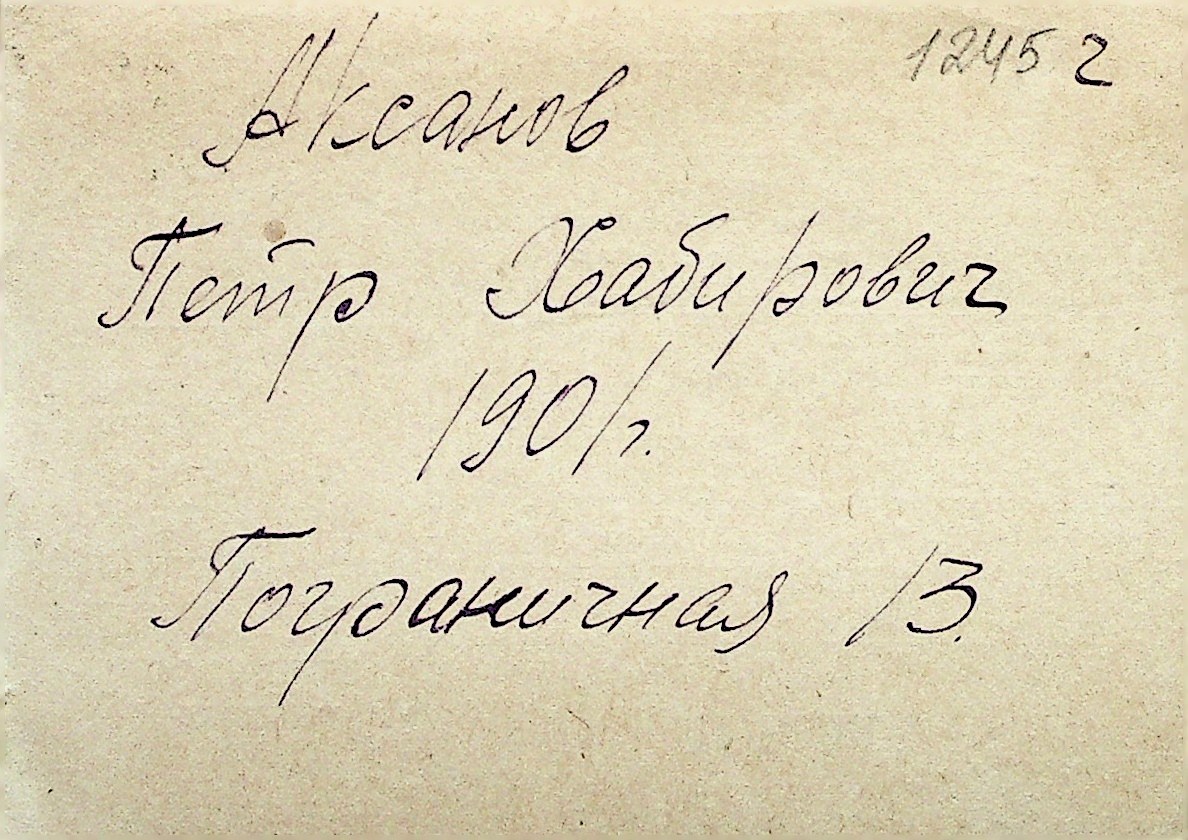 1245 г
Аксанов
Петр Хабирович
1901г.
Пограничная 13.